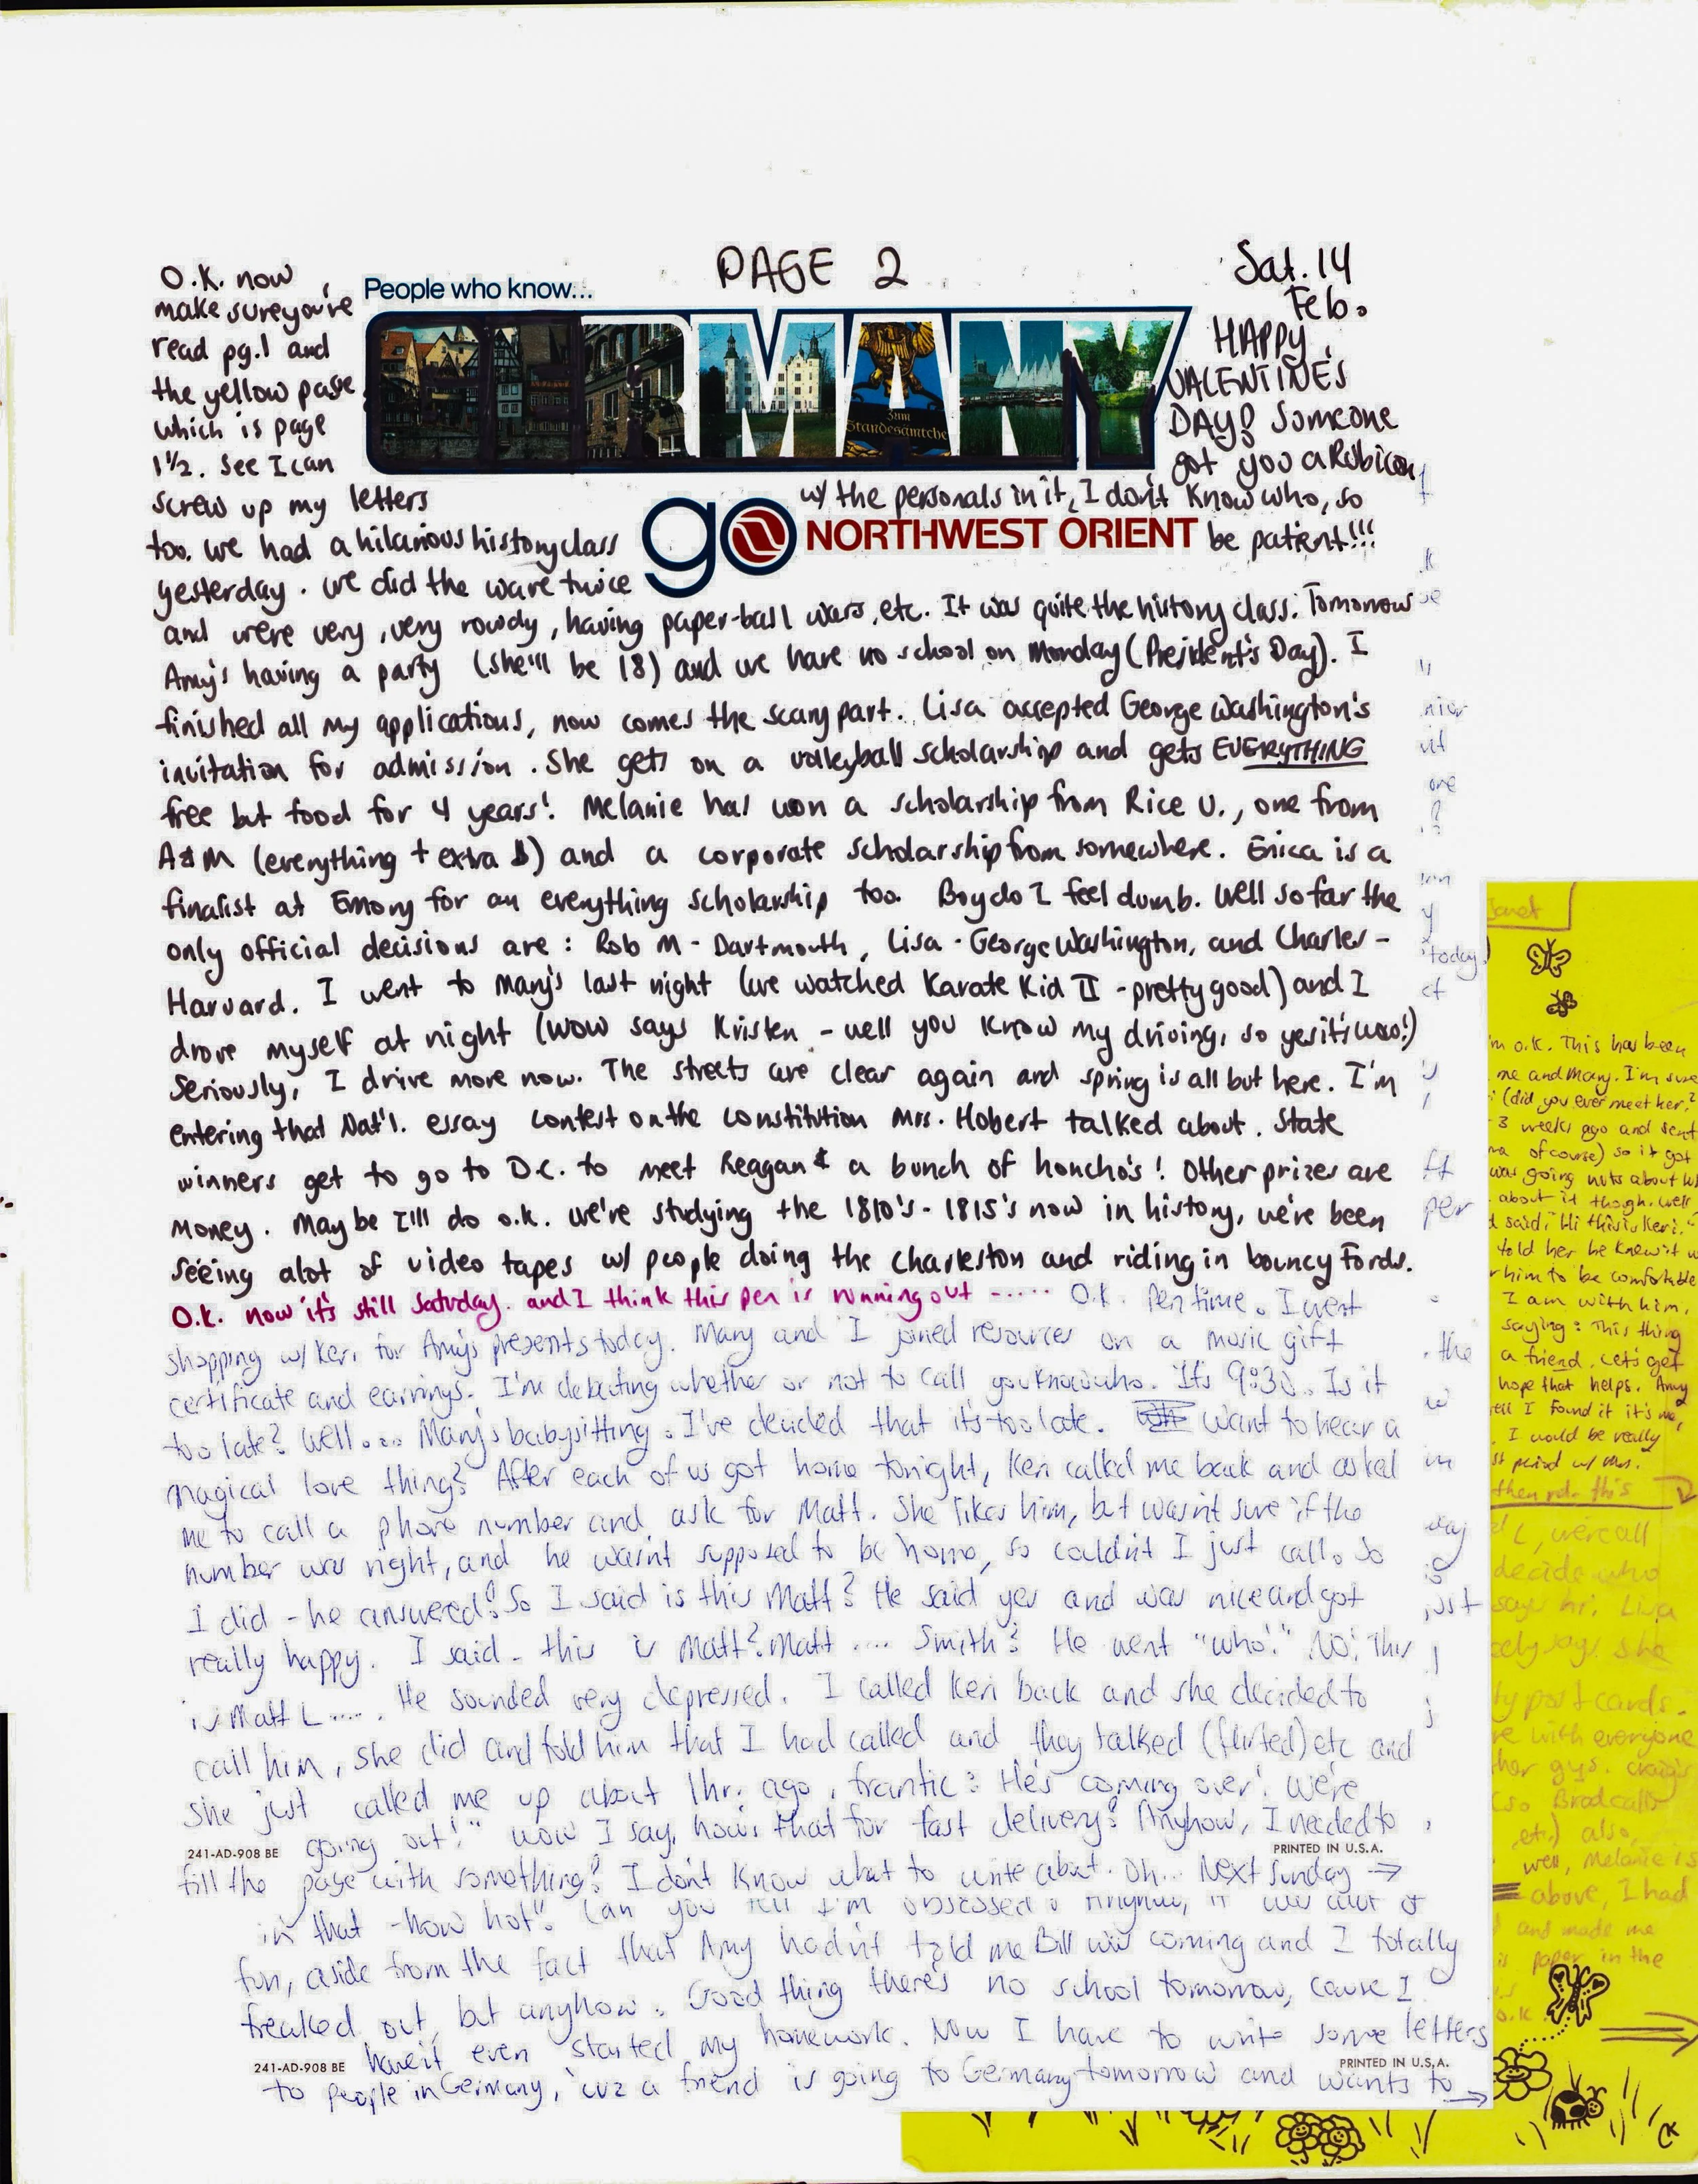 PAGE 2
Sat. 14
Feb.
HAPPY
VALENTINE'S
DAY! Someone
got you a Rubicon
w/ the personals in it, I don't know who, so
be patient!!!
People who know...
GERMANY
Zum
Standesämtche
go NORTHWEST ORIENT
O.K. now
make sure you're
read pg.1 and
the yellow page
which is page
1 1/2. See I can
screw up my letters
too. We had a hilarious history class
yesterday. We did the wave twice
and were very, very rowdy, having paper-ball wars, etc. It was quite the history class. Tomorrow
Amy's having a party (she'll be 18) and we have no school on Monday (President's Day). I
finished all my applications, now comes the scary part. Lisa accepted George Washington's
invitation for admission. She gets on a volleyball scholarship and gets EVERYTHING
free but food for 4 years! Melanie has won a scholarship from Rice U., one from
A&M (everything + extra $) and a corporate scholarship from somewhere. Erica is a
finalist at Emory for an everything scholarship too. Boy do I feel dumb. Well so far the
only official decisions are: Rob M - Dartmouth, Lisa - George Washington, and Charles -
Harvard. I went to Mary's last night (we watched Karate Kid II - pretty good) and I
drove myself at night (wow says Kristen - well you know my driving, so yes it's wow!)
Seriously, I drive more now. The streets are clear again and spring is all but here. I'm
entering that Nat'l. essay contest on the constitution Mrs. Hobert talked about. State
winners get to go to D.C. to meet Reagan & a bunch of honcho's! Other prizes are
money. Maybe I'll do o.k. We're studying the 1810's - 1815's now in history, we've been
seeing alot of video tapes w/ people doing the Charleston and riding in bouncy Fords.
O.K. now it's still Saturday. and I think this pen is running out ----- O.K. Pen time. I went
shopping w/ Keri for Amy's presents today. Mary and I joined resources on a music gift
certificate and earrings. I'm debating whether or not to call youknowwho. It's 9:30. Is it
too late? Well.... Mary's babysitting. I've decided that it's too late. Want to hear a
magical love thing? After each of us got home tonight, Keri called me back and asked
me to call a phone number and ask for Matt. She likes him, but wasn't sure if the
number was right, and he wasn't supposed to be home, so couldn't I just call. So
I did - he answered! So I said is this Matt? He said yes and was nice and got
really happy. I said - this is Matt? Matt .... Smith? He went "who!" NO! This
is Matt L..... He sounded very depressed. I called Keri back and she decided to
call him, she did and told him that I had called and they talked (flirted) etc and
she just called me up about 1hr. ago, frantic: He's coming over! We're
going out!" wow I say, how's that for fast delivery? Anyhow, I needed to
241-AD-908 BE
PRINTED IN U.S.A.
fill the page with something! I don't know what to write about. Oh... Next Sunday →
in that - how hot". Can you tell I'm obsessed? Anyhow, it was alot of
fun, aside from the fact that Amy hadn't told me Bill was coming and I totally
freaked out, but anyhow. Good thing there's no school tomorrow, cause I
haven't even started my homework. Now I have to write some letters
241-AD-908 BE
PRINTED IN U.S.A.
to people in Germany, 'cuz a friend is going to Germany tomorrow and wants to →
today.
per
the
in
just
Janet
I'm o.k. This has been
me and Mary. I'm sure
(did you ever meet her?
3 weeks ago and sent
of course) so it got
was going nuts about
about it though. Well
said, "Hi this is Keri."
told her he knew it
him to be comfortable
I am with him,
saying: This thing
a friend. Let's get
hope that helps. Amy
I found it it's me,
I would be really
period w/ Mrs.
then rd. this
L, we're all
decide who
says hi. Lisa
says she
post cards.
with everyone
her guys. Craig's
(so Brad calls
etc.) also,
well, Melanie is
above, I had
and made me
paper in the
o.k.
CK